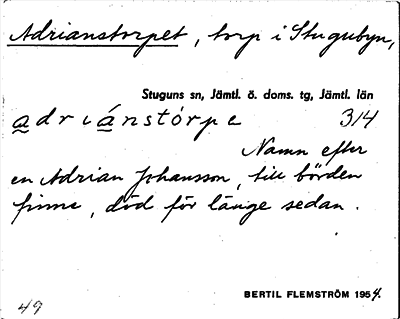 Adrianstorpet, torp i Stugubyn,
Stuguns sn, Jämtl. ö. doms. tg, Jämtl. län
adriánstórpe 3/4
Namn efter
en Adrian Johansson, till börden
finne, död för länge sedan.
BERTIL FLEMSTRÖM 1954.
49